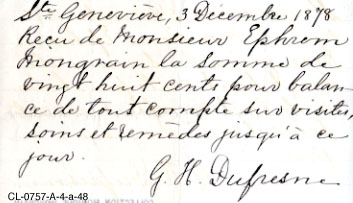 Ste Geneviève, 3 Décembre 1878
Recu de Monsieur Ephrem
Mongrain la somme de
vingt huit cents pour balan-
ce de tout compte sur visites,
soins et remèdes jusqu'à ce
jour.
G. H. Dufresne
CL-0757-A-4-a-48